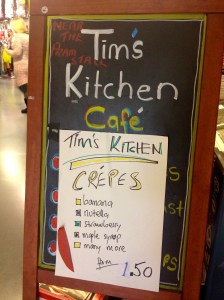 NEAR
THE
FOAM
STALL
Tim's
Kitchen
Café
TIM'S KITCHEN
CRÊPES
banana
nutella
strawberry
maple syrup
many more
from 1.50